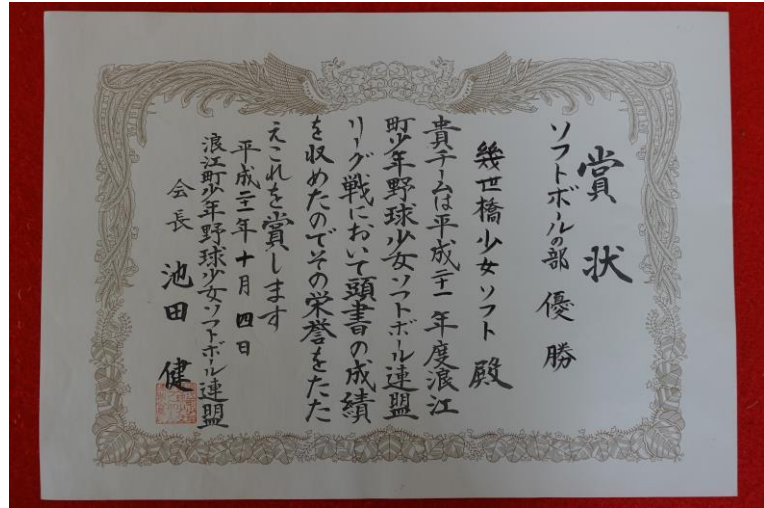 賞状
ソフトボールの部 優勝
幾世橋少女ソフト 殿
貴チームは平成二十一年度浪江
町少年野球少女ソフトボール連盟
リーグ戦において頭書の成績
を収めたのでその栄誉をたた
えこれを賞します
平成二十一年十月四日
浪江町少年野球少女ソフトボール連盟
会長 池田 健